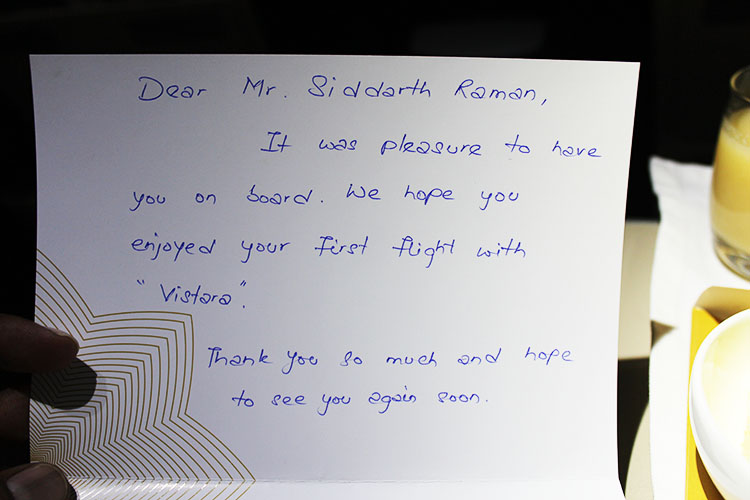 Dear Mr. Siddarth Raman,
It was pleasure to have
you on board. We hope you
enjoyed your first flight with
"Vistara".
Thank you so much and hope
to see you again soon.